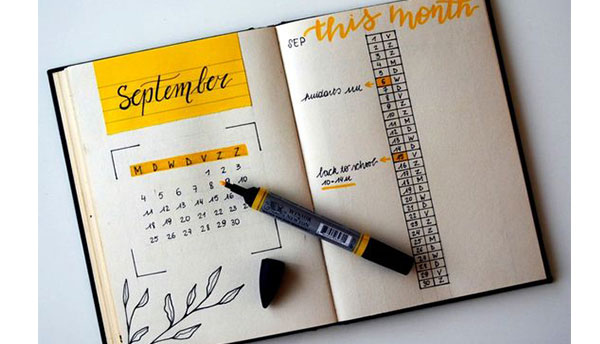 September
M D W D V Z Z
1 2 3
4 5 6 7 8 10
11 12 13 14 15 16
18 19 20 21 22 23
25 26 27 28 29 30
SEP this month
1 V
2 Z
3 Z
4 M
5 D
6 W
7 D
8 V
9 Z
10 Z
11 M
12 D
13 W
14 D
back to school 15 V
10-14u
16 Z
17 Z
18 M
19 D
20 W
21 D
22 V
23 Z
24 Z
25 M
26 D
27 W
28 D
29 V
30 Z